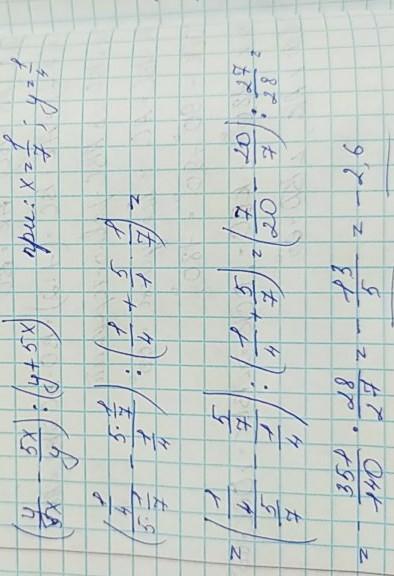 (y/5x - 5x/y) : (y + 5x) при: x = 1/7; y = 1/4
((1/4)/(5·1/7) - (5·1/7)/(1/4)) : (1/4 + 5·1/7) =
= ((1/4)/(5/7) - (5/7)/(1/4)) : (1/4 + 5/7) = (7/20 - 20/7) : 27/28 =
= - 351/140 · 28/27 = - 13/5 = - 2,6